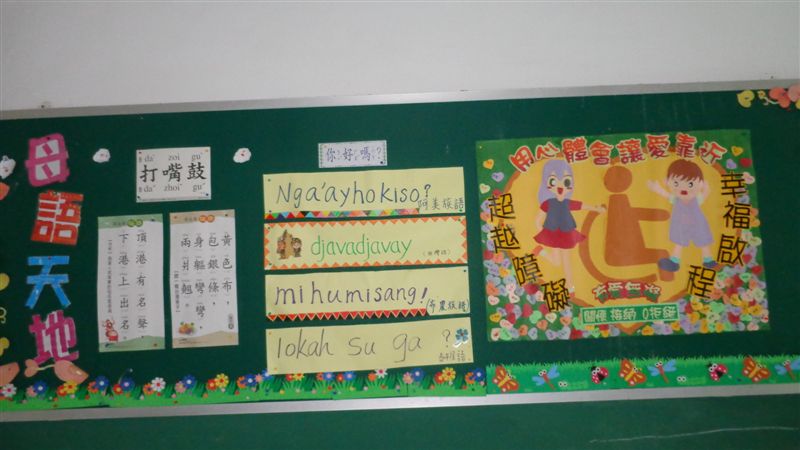 母語天地
da˙ zoi gu˙
打嘴鼓
da˙ zhoi˙ gu˙
頂港有名聲
下港上出名
黃色布,
包銀條,
身軀彎彎
兩爿翹。
你好嗎?
Nga'ayho kiso?
阿美族語
djavadjavay
(排灣語)
mihumisang!
布農族語
lokah su ga ?
用心體會讓愛靠近
超越障礙
幸福啟程
有愛無礙
關懷 接納 0拒絕